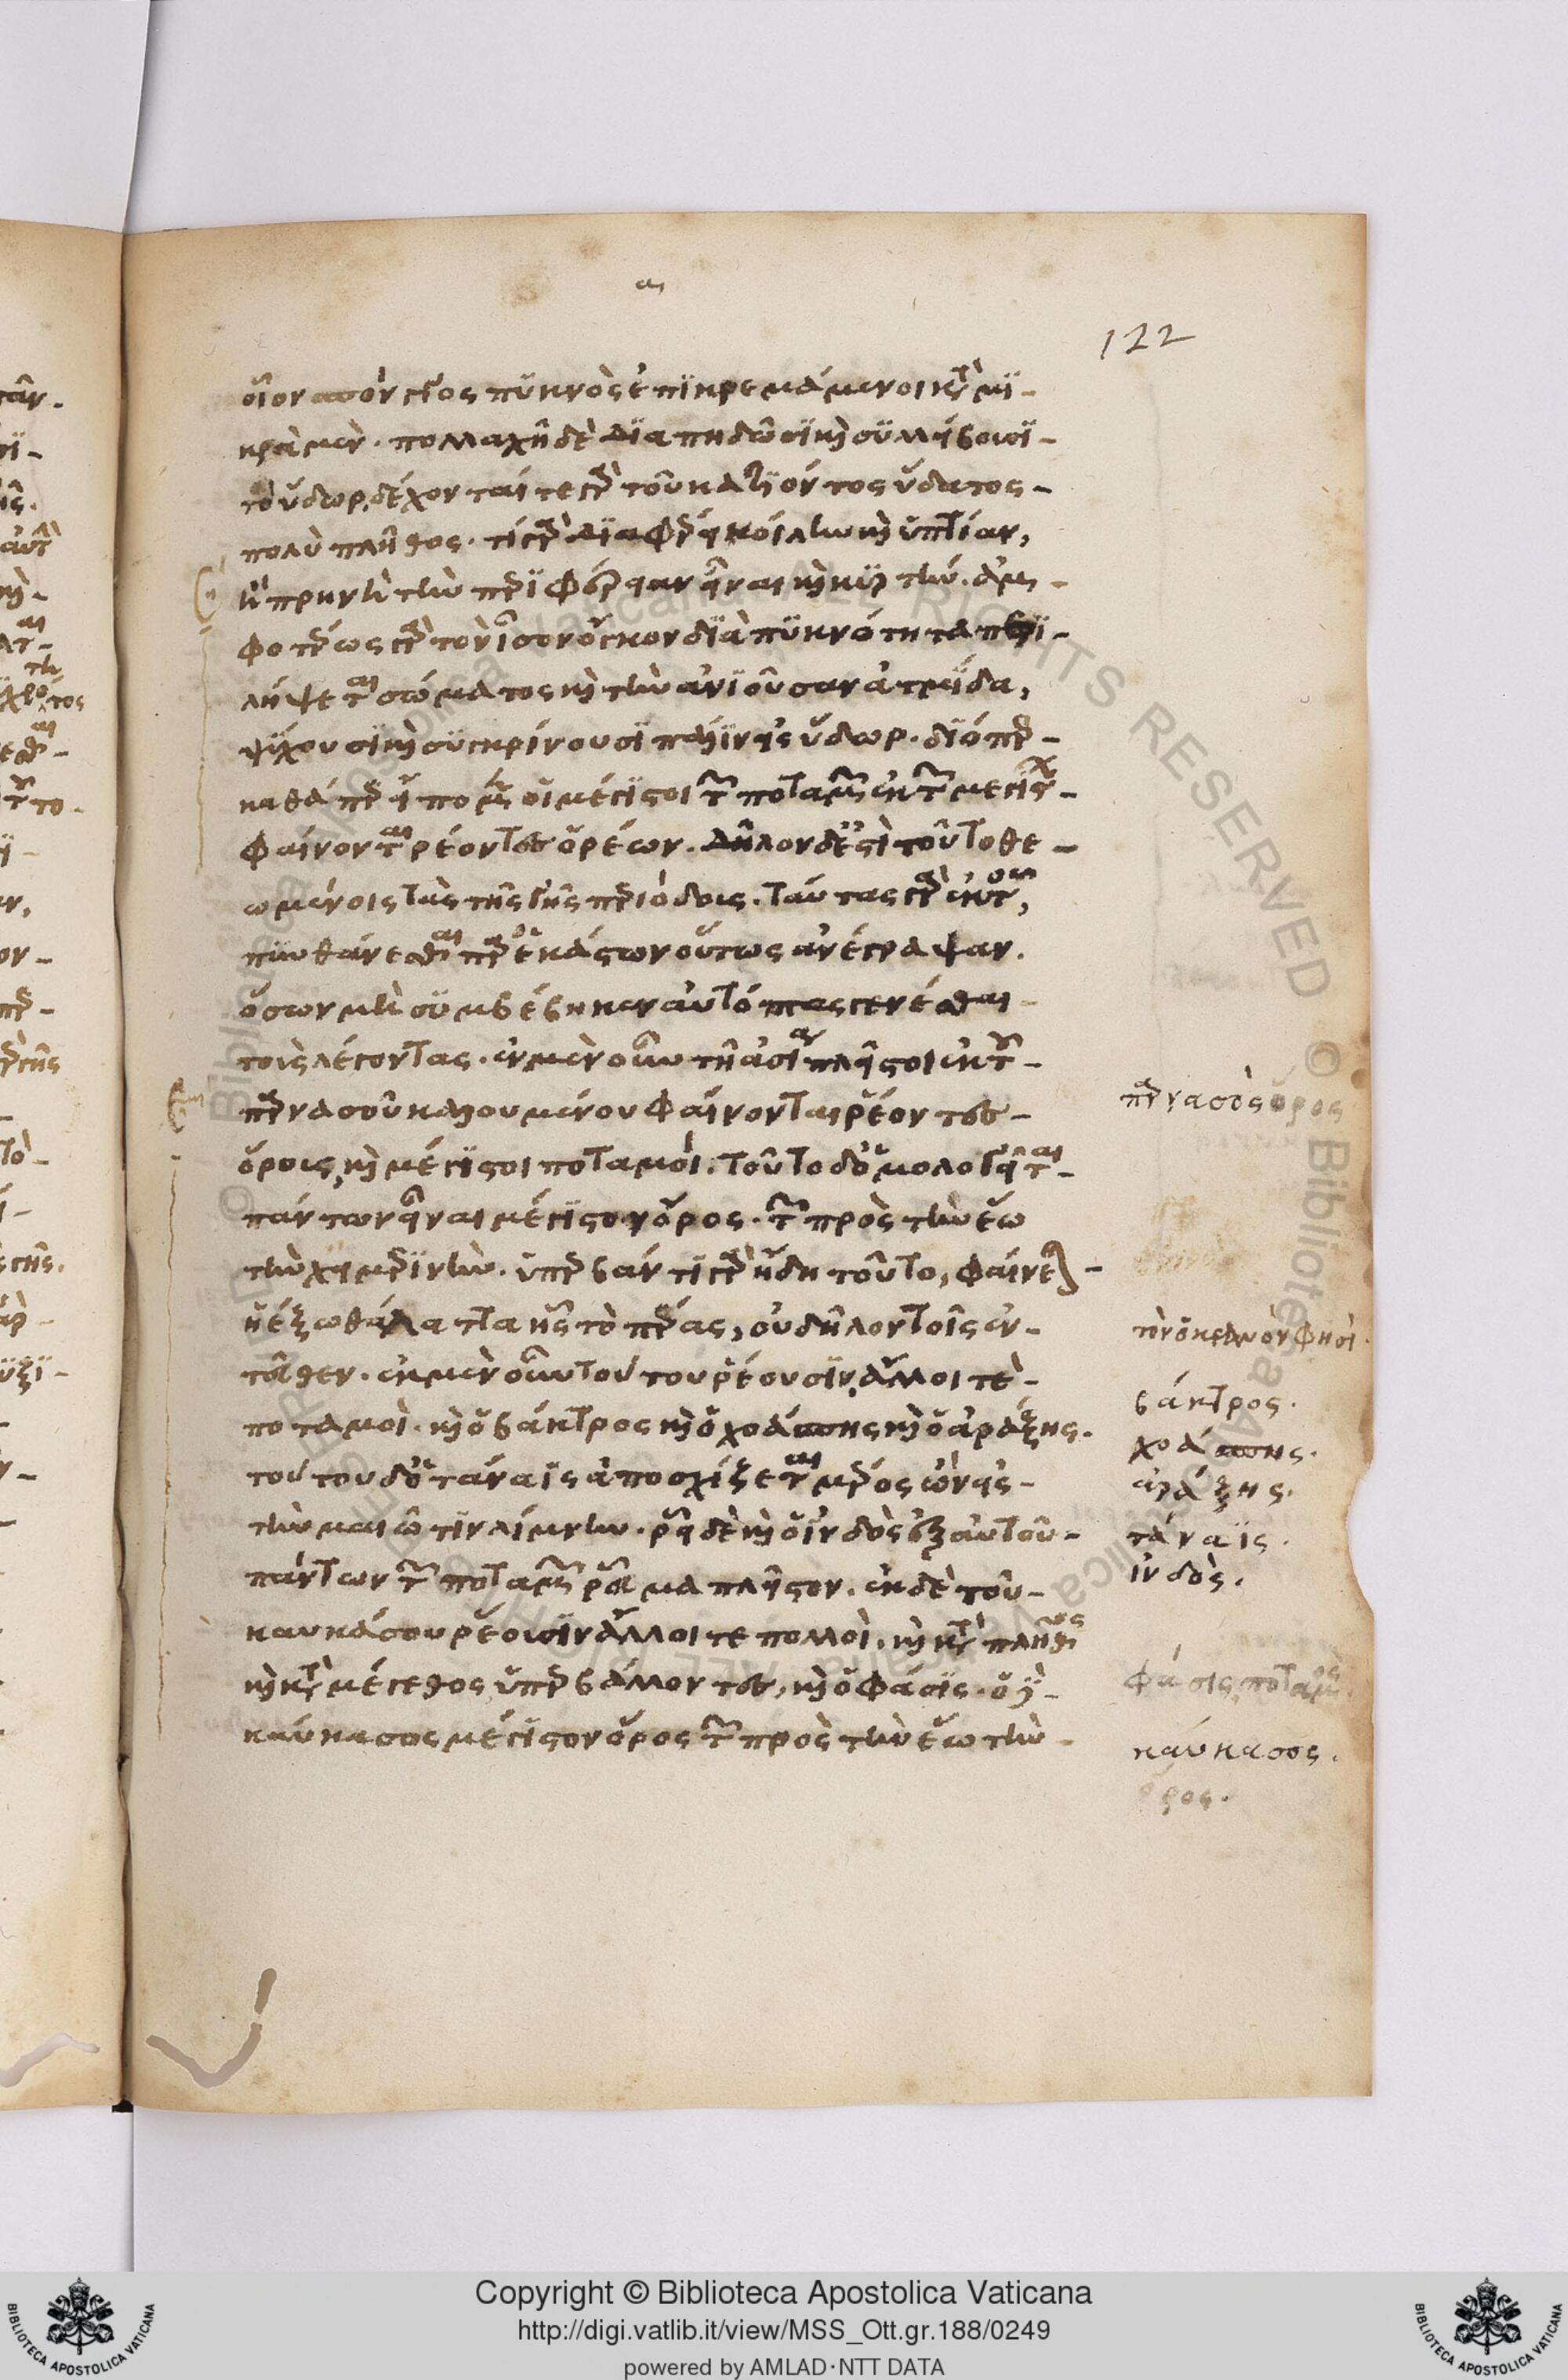 122
οἷον σπόγγος πυκνὸς ἐπικρεμάμενοι κατὰ μι-
κρὰ μὲν. πολλαχῆ δὲ διαπηδῶσι καὶ συλλείβουσι
τὸ ὕδωρ. δέχονταί τε γὰρ τοῦ κατιόντος ὕδατος
πολὺ πλῆθος. τί γὰρ διαφέρει κοίλην καὶ ὑπτίαν,
ἢ πρηνῆ τὴν περιφέρειαν εἶναι καὶ κυρτήν. ἀμ-
φοτέρως γὰρ τὸν ἴσον ὄγκον διὰ πυκνότητα περι-
λήψεται σώματος καὶ τὴν ἀνιοῦσαν ἀτμίδα,
ψύχουσι καὶ συγκρίνουσι πάλιν εἰς ὕδωρ. διόπερ
καθάπερ εἴπομεν οἱ μέγιστοι τῶν ποταμῶν ἐκ τῶν μεγίστων
φαίνονται ῥέοντες ὀρέων. δῆλον δ' ἐστὶ τοῦτο θε-
ωμένοις τὰς τῆς γῆς περιόδους. ταύτας γὰρ ἐκ τοῦ
πυνθάνεσθαι παρ' ἑκάστων οὕτως ἀνέγραψαν.
ὅσων μὴ συμβέβηκεν αὐτόπτας γενέσθαι
τοὺς λέγοντας. ἐν μὲν οὖν τῆ ἀσίαν πλεῖστοι ἐκ τοῦ
παρνασοῦ καλουμένου φαίνονται ῥέοντες
ὄρους, καὶ μέγιστοι ποταμοί. τοῦτο δ' ὁμολογεῖται
πάντων εἶναι μέγιστον ὄρος. τῶν πρὸς τὴν ἕω
τὴν χειμερινήν. ὑπερβάντι γὰρ ἤδη τοῦτο, φαίνεται
ἡ ἔξω θάλαττα ἧς τὸ πέρας, οὐ δῆλον τοῖς ἐν-
τεῦθεν. ἐκ μὲν οὖν τούτου ῥέουσιν, ἄλλοι τε
ποταμοὶ. καὶ ὁ βάκτρος καὶ ὁ χοάσπης καὶ ὁ ἀράξης.
τούτου δ' ὁ τάναϊς ἀποσχίζεται μέρος ὢν εἰς
τὴν μαιῶτιν λίμνην. ῥεῖ δὲ καὶ ὁ ἰνδὸς ἐξ αὐτοῦ
πάντων τῶν ποταμῶν ῥεῦμα πλεῖστον. ἐκ δὲ τοῦ
καυκάσου ῥέουσιν ἄλλοι τε πολλοὶ. καὶ κατὰ πλῆθος
καὶ κατὰ μέγεθος ὑπερβάλλοντες, καὶ ὁ φάσις. ὁ δὲ
καύκασος μέγιστον ὄρος τῶν πρὸς τὴν ἕω τὴν
παρνασὸς ὄρος
τὸν ὠκεανὸν φησί.
βάκτρος.
χοάσπης.
ἀράξης.
τάναϊς.
ἰνδός.
φάσις ποταμός.
καύκασος.
ὄρος.
Copyright © Biblioteca Apostolica Vaticana
http://digi.vatlib.it/view/MSS_Ott.gr.188/0249
powered by AMLAD·NTT DATA
BIBLIOTECA APOSTOLICA VATICANA
BIBLIOTECA APOSTOLICA VATICANA